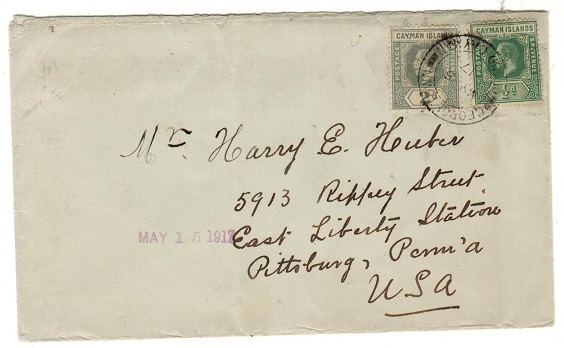 CAYMAN ISLANDS
CAYMAN ISLANDS
POSTAGE
POSTAGE
REVENUE
½d
Mr Harry E. Huber
5913 Rippey Street
East Liberty Station
Pittsburg, Penn'a
USA
MAY 15 1917